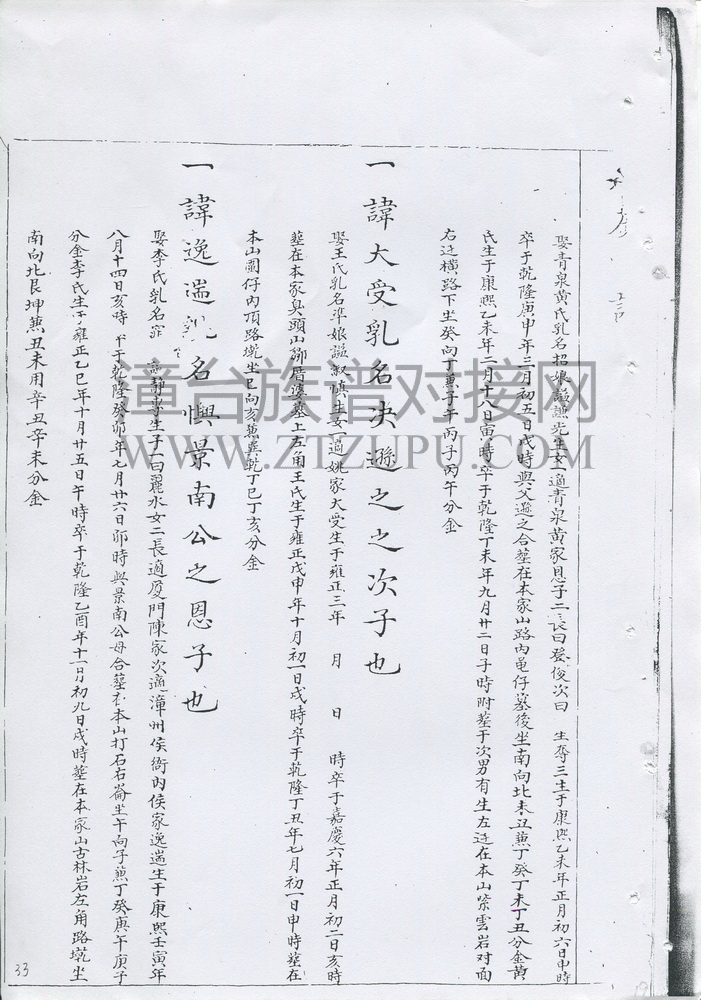 娶青泉黃氏乳名招娘謚謙光生女一適青泉黃家恩子二長曰登俊次曰 生奪三生于康熙乙未年正月初六日申時
卒于乾隆庚申年三月初五日戌時與父遜之合塟在本家山路內黽仔墓後坐南向北未丑兼丁癸丁未丁丑分金黃
氏生于康熙乙未年二月十八日寅時卒于乾隆丁未年九月廿二日子時附塟于次男有生左边在本山紫雲岩对面
右边横路下坐癸向丁兼子午丙子丙午分金
一諱大受乳名决遜之之次子也
娶王氏乳名準娘謚淑慎生女一適姚家大受生于雍正三年 月 日 時卒于嘉慶六年正月初二日亥時
塟在本家臭頭山師厝婆墓上左角王氏生于雍正戊申年十月初一日戌時卒于乾隆丁丑年七月初一日申時塟在
本山圍仔內頂路墘坐巳向亥兼巽乾丁巳丁亥分金
一諱逸湍乳名㒜景南公之恩子也
娶李氏乳名 謚靜專生子一曰麗水女二長適廈門陳家次適漳州侯衙內侯家逸湍生于康熙壬寅年
八月十四日亥時卒于乾隆癸卯年七月廿六日卯時與景南公母合塟在本山打石右崙坐午向子兼丁癸庚午庚子
分金李氏生于雍正乙巳年十月廿五日午時卒于乾隆乙酉年十一月初九日戌時塟在本家山古林岩左角路墘坐
南向北艮坤兼丑未用辛丑辛未分金
33
漳台族谱对接网
WWW.ZTZUPU.COM